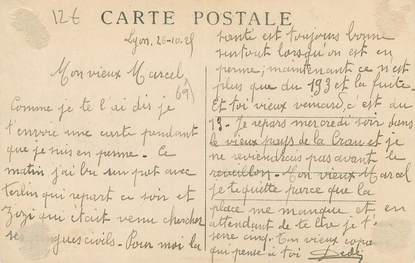 12€
CARTE POSTALE
Lyon, 26-10-25
Mon vieux Marcel
69
Comme je te l'ai dis je
t'envoie une carte pendant
que je suis en perme. Ce
matin j'ai bu un pot avec
qui repart ce soir et
Zozi qui était venu chercher
ses civils. Pour moi la
santé est toujours bonne
surtout lorsqu'on est en
perme; maintenant ce n'est
plus que du 193 et la fuite.
Et toi vieux veinard, c'est du
13. Je repars mercredi soir dans
le vieux pays de la Crau et je
ne reviendrais pas avant le
réveillon. Mon vieux Marcel
je te quitte parce que la
place me manque et en
attendant de te lire je t'
serre cinq. Ton vieux copain
qui pense à toi